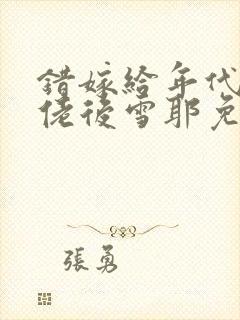 錯嫁給年代
佬後雪耶免
張勇